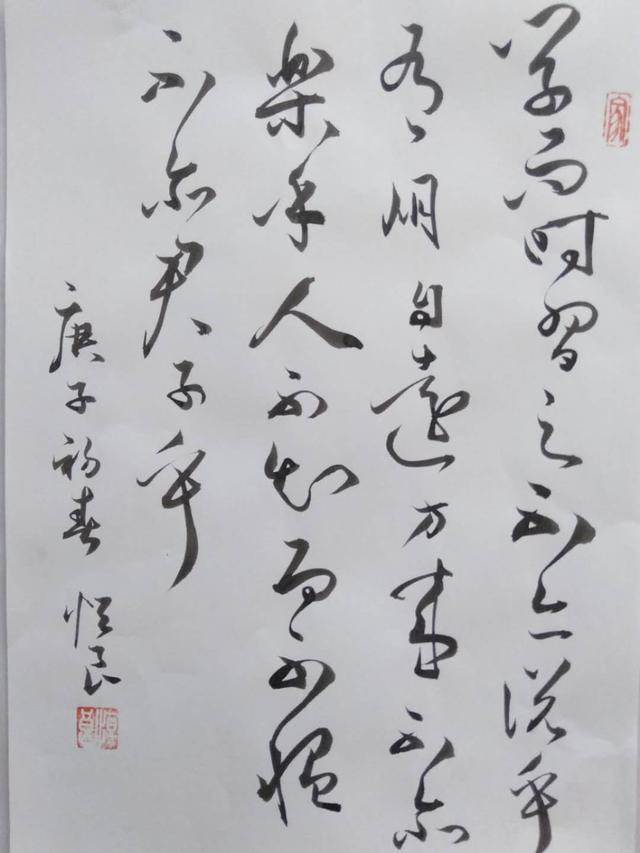 学而时习之不亦说乎
有朋自远方来不亦
樂乎人不知而不愠
不亦君子乎
庚子初春 恒良